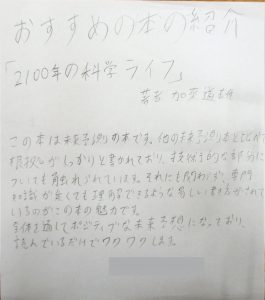 おすすめの本の紹介
「2100年の科学ライフ」
著者 加來道雄
この本は未来予測の本です。他の未来予測本とちがって
根拠がしっかりと書かれており、技術的な部分に
ついても触れられています。それにも関わらず、専門
知識が無くても理解できるような易しい書き方がされて
いるのがこの本の魅力です。
全体を通してポジティブな未来予想になっており、
読んでいるだけでワクワクします。